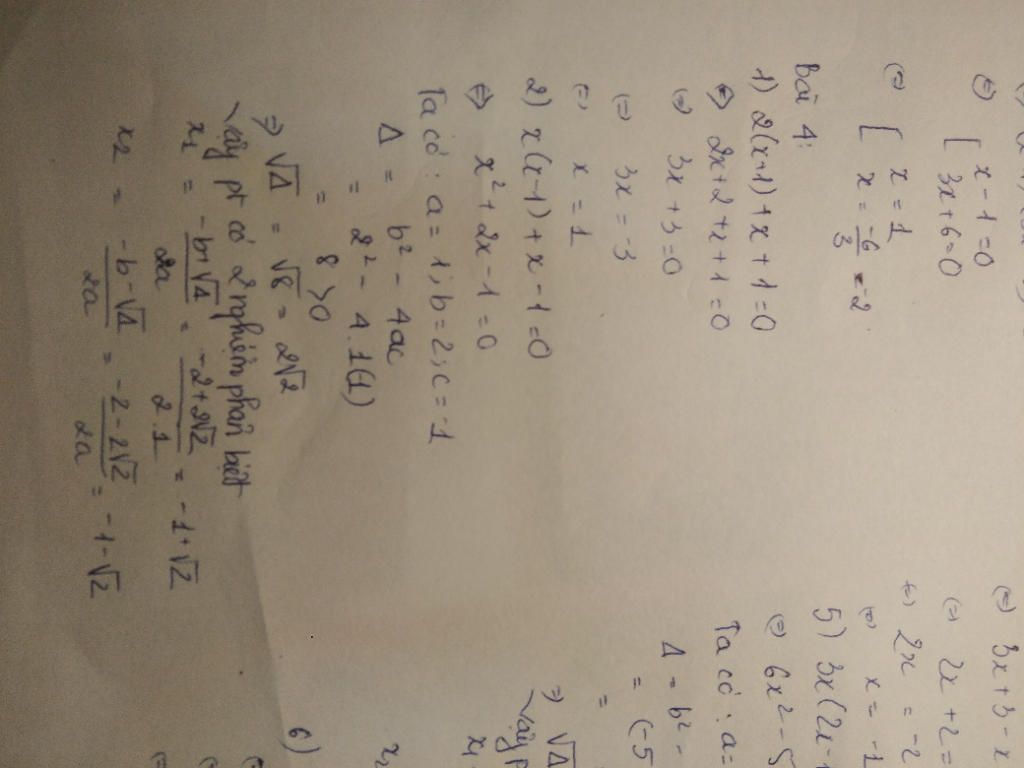 ⇔ [ x - 1 = 0
3x + 6 = 0
⇔ [ x = 1
x = -6/3 = -2
Bài 4:
1) 2(x+1) + x + 1 = 0
⇔ 2x + 2 + x + 1 = 0
⇔ 3x + 3 = 0
⇔ 3x = -3
⇔ x = 1
2) x(x-1) + x - 1 = 0
⇔ x² + 2x - 1 = 0
Ta có: a = 1; b = 2; c = -1
Δ = b² - 4ac
= 2² - 4.1(1)
= 8 > 0
⇒ √Δ = √8 = 2√2
Vậy pt có 2 nghiệm phân biệt
x₁ = -b+√Δ / 2a = -2+2√2 / 2.1 = -1+√2
x₂ = -b-√Δ / 2a = -2-2√2 / 2a = -1-√2
⇔ 3x + 3 - x
⇔ 2x + 2 =
⇔ 2x = -2
⇔ x = -1
5) 3x(2x-1
⇔ 6x² - 5
Ta có: a =
Δ = b² -
= (-5
=
⇒ √Δ
Vậy p
x₁
x₂
6)